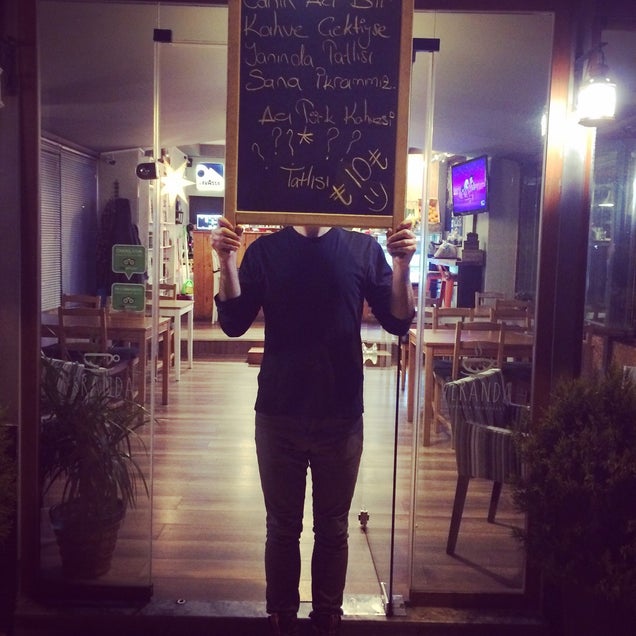 Canın Acı Bir
Kahve Çektiyse
Yanında Tatlısı
Sana İkramımız.
Acı Türk Kahvesi
? ? ? * ? ?
Tatlısı ₺10₺
:)
VERANDA